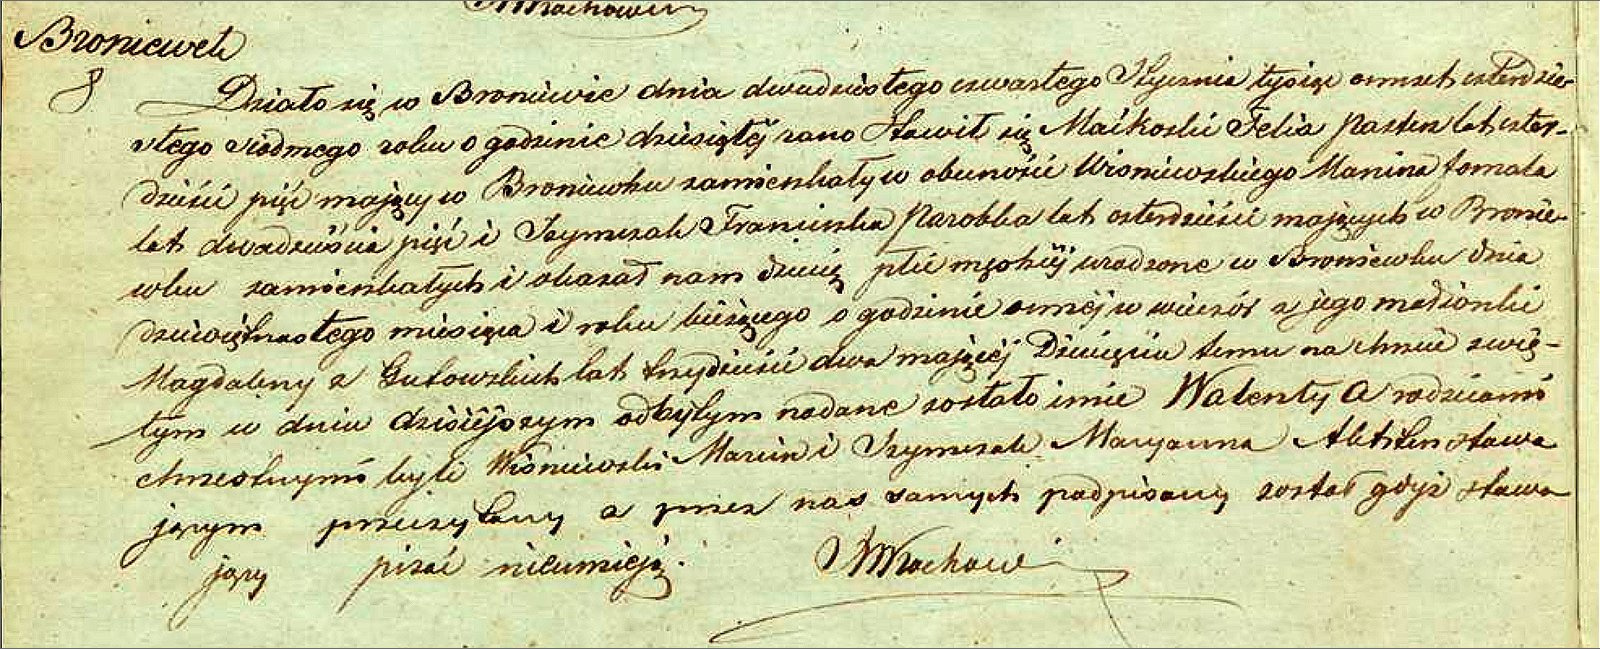 Broniewek
8
Działo się w Broniewie dnia dwudziestego czwartego Stycznia tysiąc ośmset czterdzie-
stego siódmego roku o godzinie dziesiątéj rano Stawił się Maikoski Felix Pasterz lat czter-
dzieści pięć mający w Broniewku zamieszkały w obecności Wiśniewskiego Marcina fornala
lat dwadzieścia pięć i Szymczak Franciszka Parobka lat czterdzieści mających w Bronie-
wku zamieszkałych i okazał nam dziecię płci męzkiéj urodzone w Broniewku dnia
dziewiętnastego miesiąca i roku bieżącego o godzinie ósméj w wieczór z jego małżonki
Magdaleny z Gutowskich lat trzydzieści dwa mającéj Dziecięciu temu na chrzcie świę-
tym w dniu dzisiéjszym odbytym nadane zostało imie Walenty a rodzicami
chrzestnymi byli Wiśniewski Marcin i Szymczak Maryanna Akt ten stawa
jącym przeczytany a przez nas samych podpisany został gdyż stawa
jący pisać nieumieją.